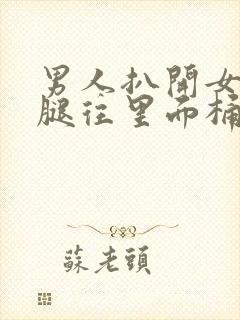 男人扒開女
腿往里而桶
蘇老頭